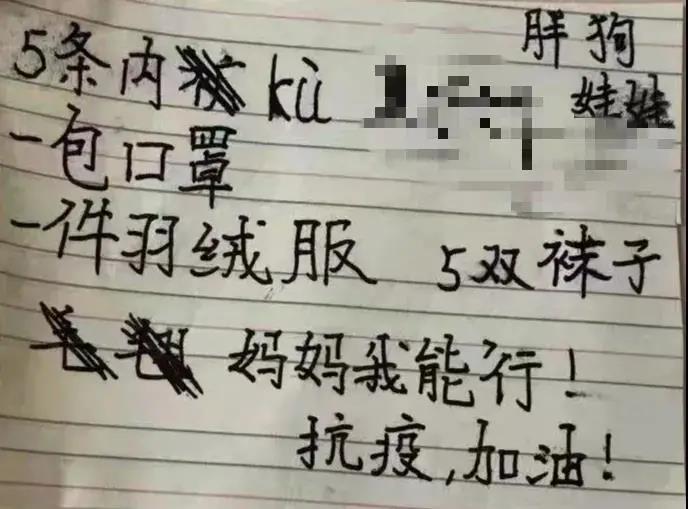 胖狗
5条内kù 娃娃
一包口罩
一件羽绒服 5双袜子
妈妈我能行!
抗疫,加油!